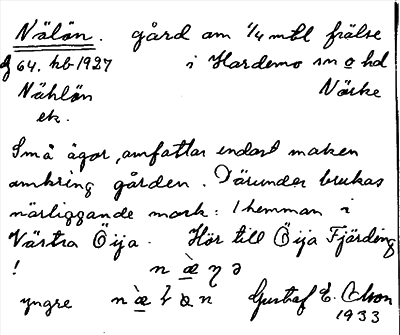 Nälön. gård om 1/4 mtl frälse
f 64. hb 1927 i Hardemo sn o hd
Nählön Närke
ek.
Små ägor, omfattar endast marken
omkring gården. Därunder brukas
närliggande mark: 1 hemman i
Västra Öija. Hör till Öija Fjärding
!
n æ̀ η ə
yngre n æ̀ ł ə n Gustaf E. Olson
1933